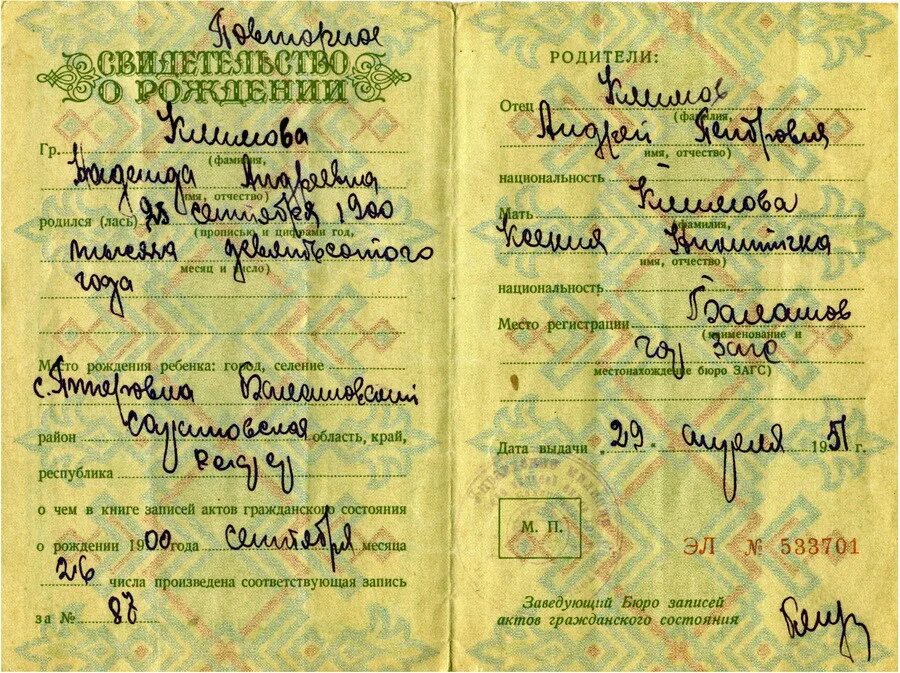 Повторное
СВИДЕТЕЛЬСТВО
О РОЖДЕНИИ
Гр. Климова
(фамилия,
Надежда Андреевна
имя, отчество)
родился (лась) 25 сентября 1900
(прописью и цифрами год,
тысяча девятьсотого
месяц и число)
года
Место рождения ребенка: город, селение
с. Балашовский
район Саратовская область, край,
республика РСФСР
о чем в книге записей актов гражданского состояния
о рождении 1900 года сентября месяца
26 числа произведена соответствующая запись
за № 87
РОДИТЕЛИ:
Отец Климов
(фамилия,
Андрей Петрович
имя, отчество)
национальность
Мать Климова
(фамилия,
Ксения Никитична
имя, отчество)
национальность
Место регистрации Балашов
(наименование и
гор загс
местонахождение бюро ЗАГС)
Дата выдачи „29" апреля 1951 г.
М. П.
ЭЛ № 533701
Заведующий Бюро записей
актов гражданского состояния